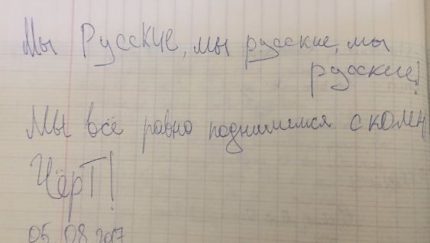 Мы Русские, мы русские, мы
русские!
Мы всё равно поднимемся с колен
Чёрт!
05 08 2017